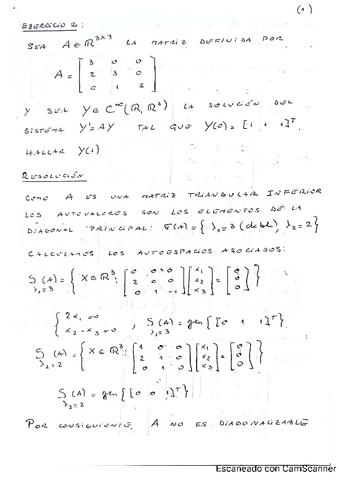 (1)
EJERCICIO 2:
SEA A ∈ ℝ^{3×3} LA MATRIZ DEFINIDA POR
A = [3 0 0; 2 3 0; 0 1 2]
Y SEA Y ∈ C^∞(ℝ, ℝ³) LA SOLUCIÓN DEL
SISTEMA Y' = AY TAL QUE Y(0) = [1 1 1]^T
HALLAR Y(1)
RESOLUCIÓN
COMO A ES UNA MATRIZ TRIANGULAR INFERIOR
LOS AUTOVALORES SON LOS ELEMENTOS DE LA
DIAGONAL PRINCIPAL: σ(A) = { λ₁=3 (doble), λ₂=2 }
CALCULAMOS LOS AUTOESPACIOS ASOCIADOS:
S_{λ₁=3}(A) = { X ∈ ℝ³: [0 0 0; 2 0 0; 0 1 -1] [x₁; x₂; x₃] = [0; 0; 0] }
{ 2x₁ = 0; x₂ - x₃ = 0 , S_{λ₁=3}(A) = gen { [0 1 1]^T }
S_{λ₂=2}(A) = { X ∈ ℝ³: [1 0 0; 2 1 0; 0 1 0] [x₁; x₂; x₃] = [0; 0; 0] }
S_{λ₂=2}(A) = gen { [0 0 1]^T }
POR CONSIGUIENTE A NO ES DIAGONALIZABLE
Escaneado con CamScanner